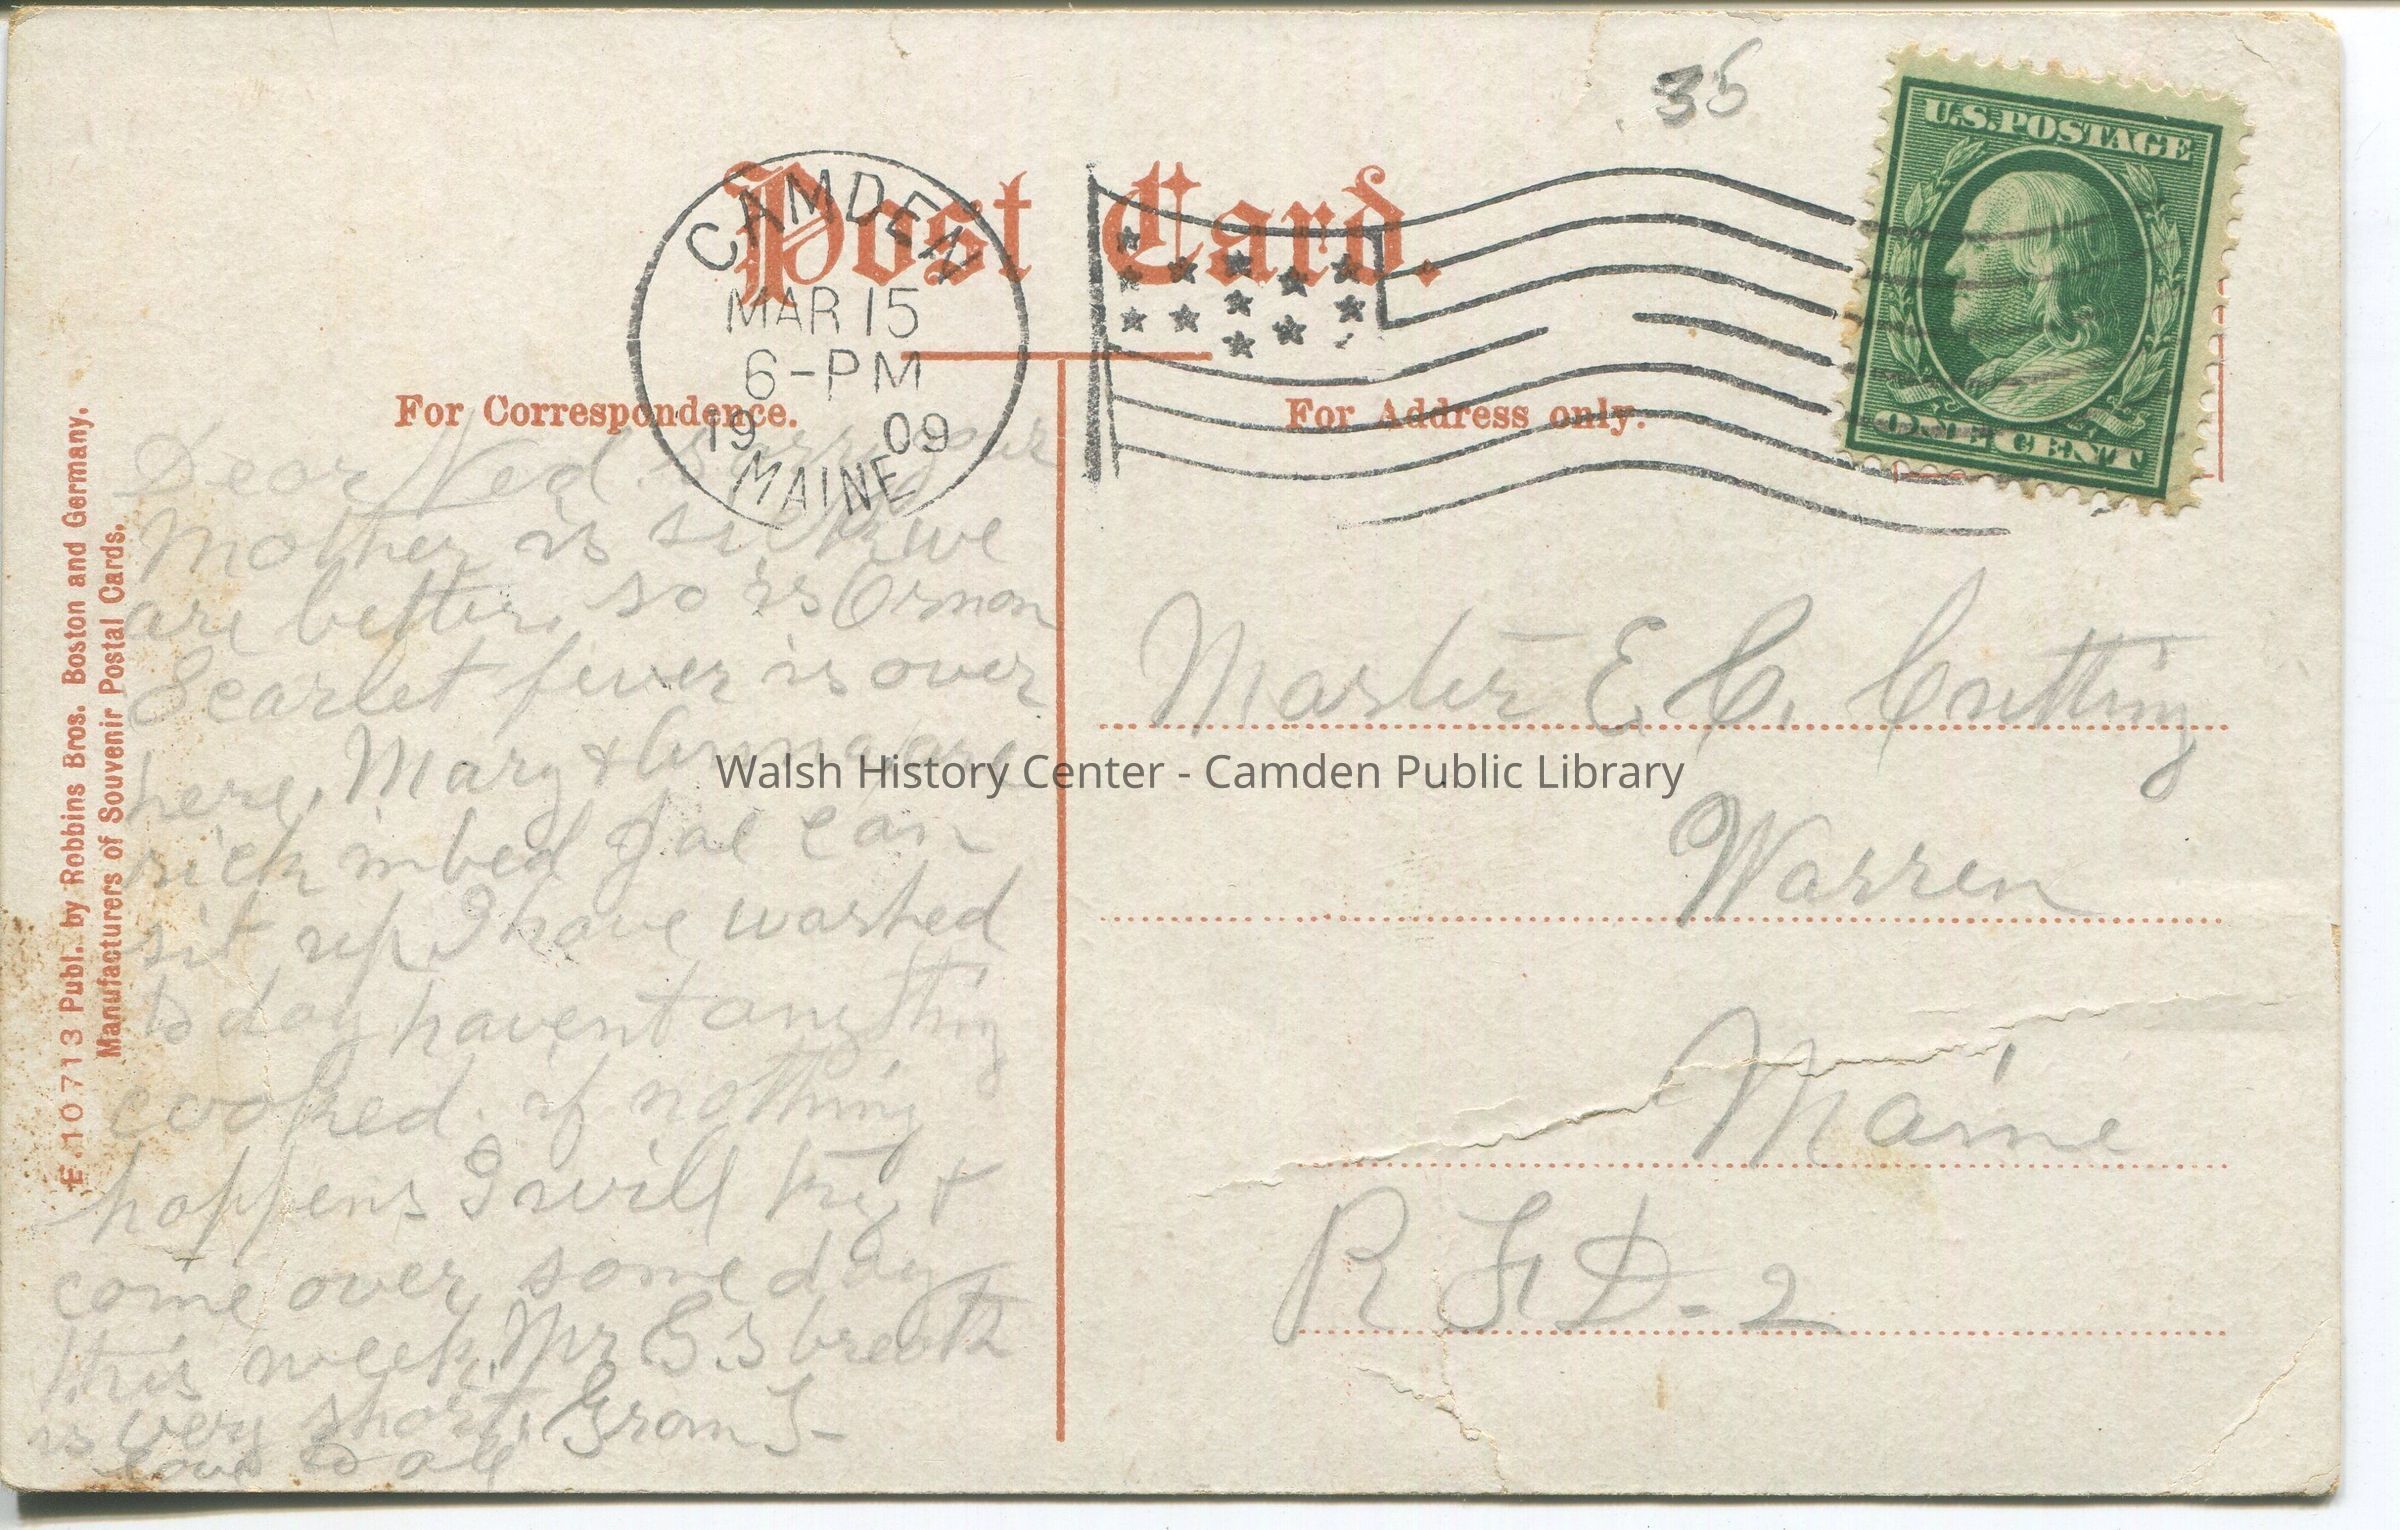 35
U.S. POSTAGE
ONE CENT
Post Card.
CAMDEN
MAR 15
6-PM
19 09
MAINE
For Correspondence.
For Address only.
E.10713 Publ. by Robbins Bros. Boston and Germany.
Manufacturers of Souvenir Postal Cards.
Dear Ned Sorry your
Mother is sick we
are better, so is Ormon
Scarlet fever is over
here, Mary & Anna are
sick in bed Jae can
sit up I have washed
to day havent any thing
cooked. if nothing
happens I will try &
come over some day
this week, Mr G.S breath
is very short, Gram S-
love to all
Master E C. Cutting
Warren
Maine
R F D-2
Walsh History Center - Camden Public Library